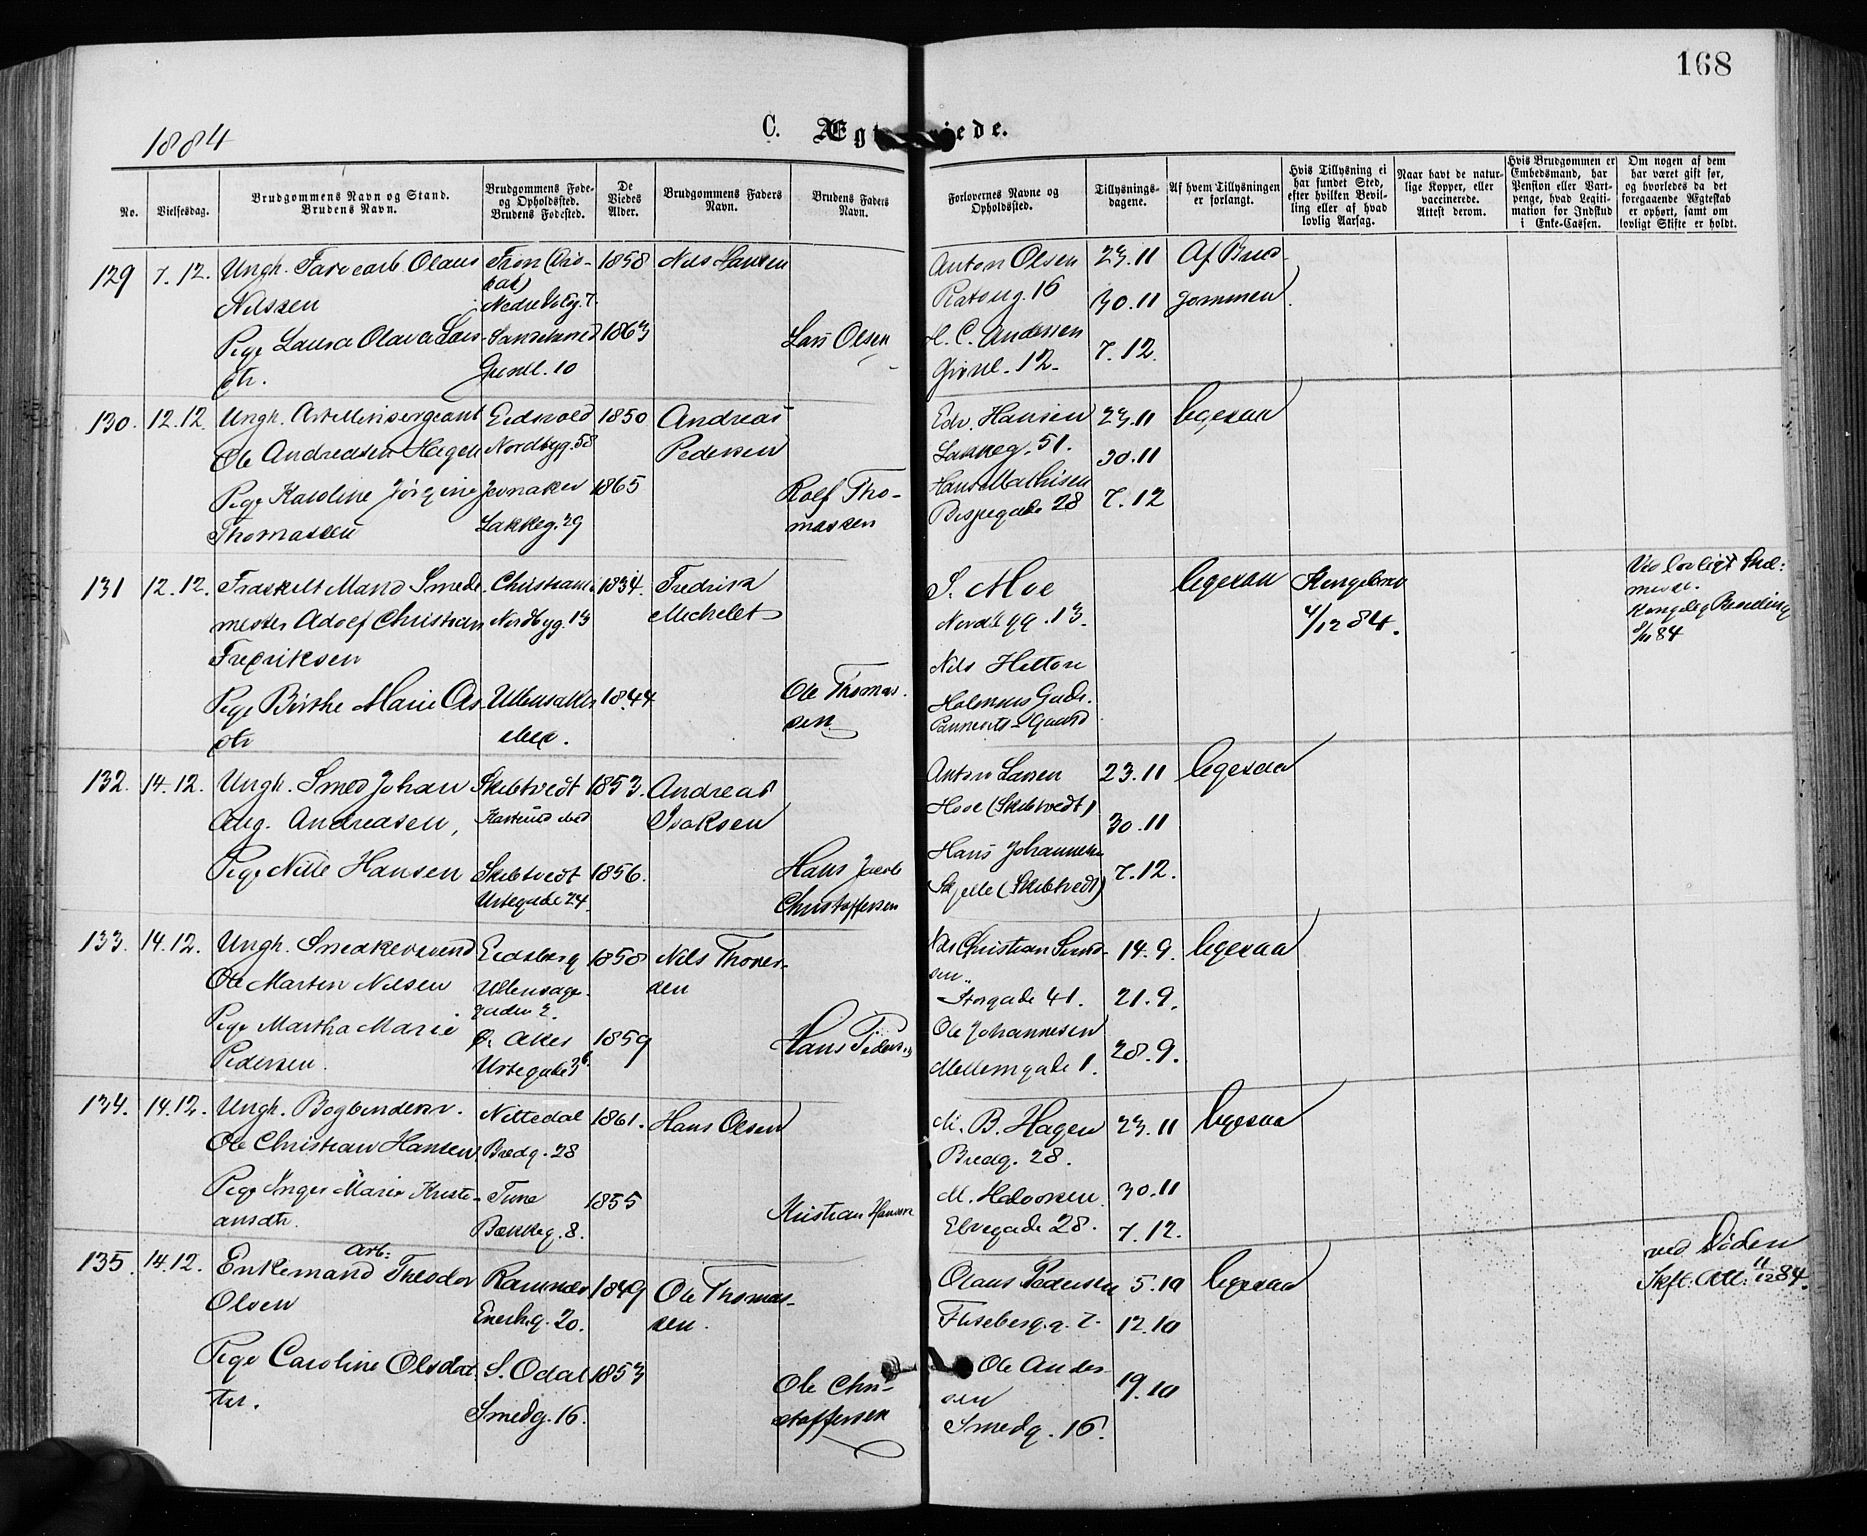 168
1884
C. Ægt iede.
No.
Vielsesdag.
Brudgommens Navn og Stand.
Brudens Navn.
Brudgommens Føde-
og Opholdssted.
Brudens Fødested.
De
Viedes
Alder.
Brudgommens Faders
Navn.
Brudens Faders
Navn.
Forlovernes Navne og
Opholdssted.
Tillysnings-
dagene.
Af hvem Tillysningen
er forlangt.
Hvis Tillysning ei
har fundet Sted,
efter hvilken Bevil-
ling eller af hvad
lovlig Aarsag.
Naar havt de natur-
lige Kopper, eller
vaccinerede.
Attest derom.
Hvis Brudgommen er
Embedsmand, har
Pension eller Vart-
penge, hvad Legiti-
mation for Indskud
i Enke-Cassen.
Om nogen af dem
har været gift før,
og hvorledes da det
foregaaende Ægteskab
er ophørt, samt om
lovligt Skifte er holdt.
129 7.12. Ungh. Olaus 1858 Nils Hansen
Nilssen
Pige Laura Olava Lars- 1863 Lars Olsen
dtr. Grønl. 10
Anton Olsen 23.11 Af Brud-
16 30.11 gommen
H. C. Andersen
Grønl. 12. 7.12.
130. 12.12. Ungh. Artillerisergeant Eidsvold 1850 Andreas
Ole Andreasen Hagen Nordbyg. 58 Pedersen
Pige Karoline Jørgine Jevnaker 1865 Rolf Tho-
Thomassen Lakkeg. 29 massen
Edv. Hansen 23.11 ligesaa
Lakkeg. 51. 30.11
Hans Mathisen
Bispegade 28 7.12
131 12.12. Fraskilt Mand Smede- Christiania 1834. Fredrik
mester Adolf Christian Nordbyg. 13 Michelet
Fredriksen
Pige Birthe Marie Ols- Ullensaker 1844 Ole Thomas-
dtr sen
S. Moe ligesaa Kongebrev
Nordbygg. 13. 4/12 84.
Nils
Gade.
Gaard
Ved lovligt Skil-
misse.
Kongelig Bevilling
84
132. 14.12. Ungh. Smed Johan Skibtvedt 1853. Andreas
Aug. Andreasen, Isaksen
Pige Nille Hansen Skibtvedt 1856. Hans Jacob
Urtegade 24. Christoffersen
Anton Larsen 23.11 ligesaa
(Skibtvedt) 30.11
Hans Johannesen
(Skibtvedt) 7.12.
133. 14.12. Ungh. Snedkersvend Eidsberg 1858 Nils Thores-
Ole Martin Nilsen sen
gaden 2.
Pige Martha Marie Ø. Aker 1859 Hans Pedersen
Pedersen. Urtegade 36
Christian Sund- 14.9. ligesaa
sen
Storgade 41. 21.9.
Ole Johannesen
Mellemgade 1. 28.9.
134. 14.12. Ungh. Bogbinder Nittedal 1861. Hans Olsen
Ole Christian Hansen Bredg. 28
Pige Inger Marie Kristi- Tune 1855 Kristian Hansen
ansdtr. Bakkeg. 8.
M. B. Hagen 23.11 ligesaa
Bredg. 28.
M. Halvorsen 30.11
Elvegade 28. 7.12.
135. 14.12. Enkemand Arb: Theodor Ramnæs 1849 Ole Thomas-
Olsen Enerh.g. 20. sen.
Pige Caroline Olsdat- S. Odal 1853 Ole Chri-
ter. Smedg. 16. stoffersen
Olaus Pedersen 5.10 ligesaa
Fliseberg.g. 7. 12.10
Ole Ander-
sen 19.10
Smedg. 16.
ved Døden
Skft. Att: 11/12 84.